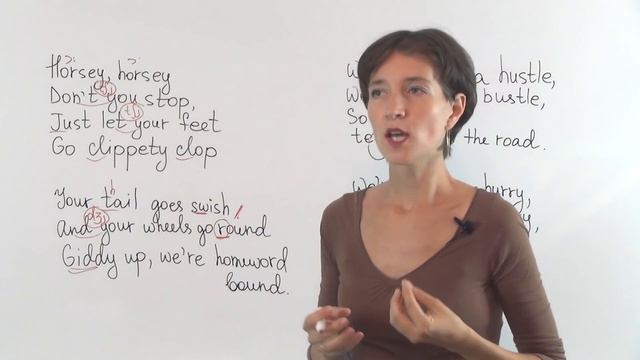 Horsey, horsey
Don't you stop,
Just let your feet
Go clippety clop
Your tail goes swish
And your wheels go round
Giddy up, we're homeword
bound.
a hustle,
bustle,
So
the road.
hurry,